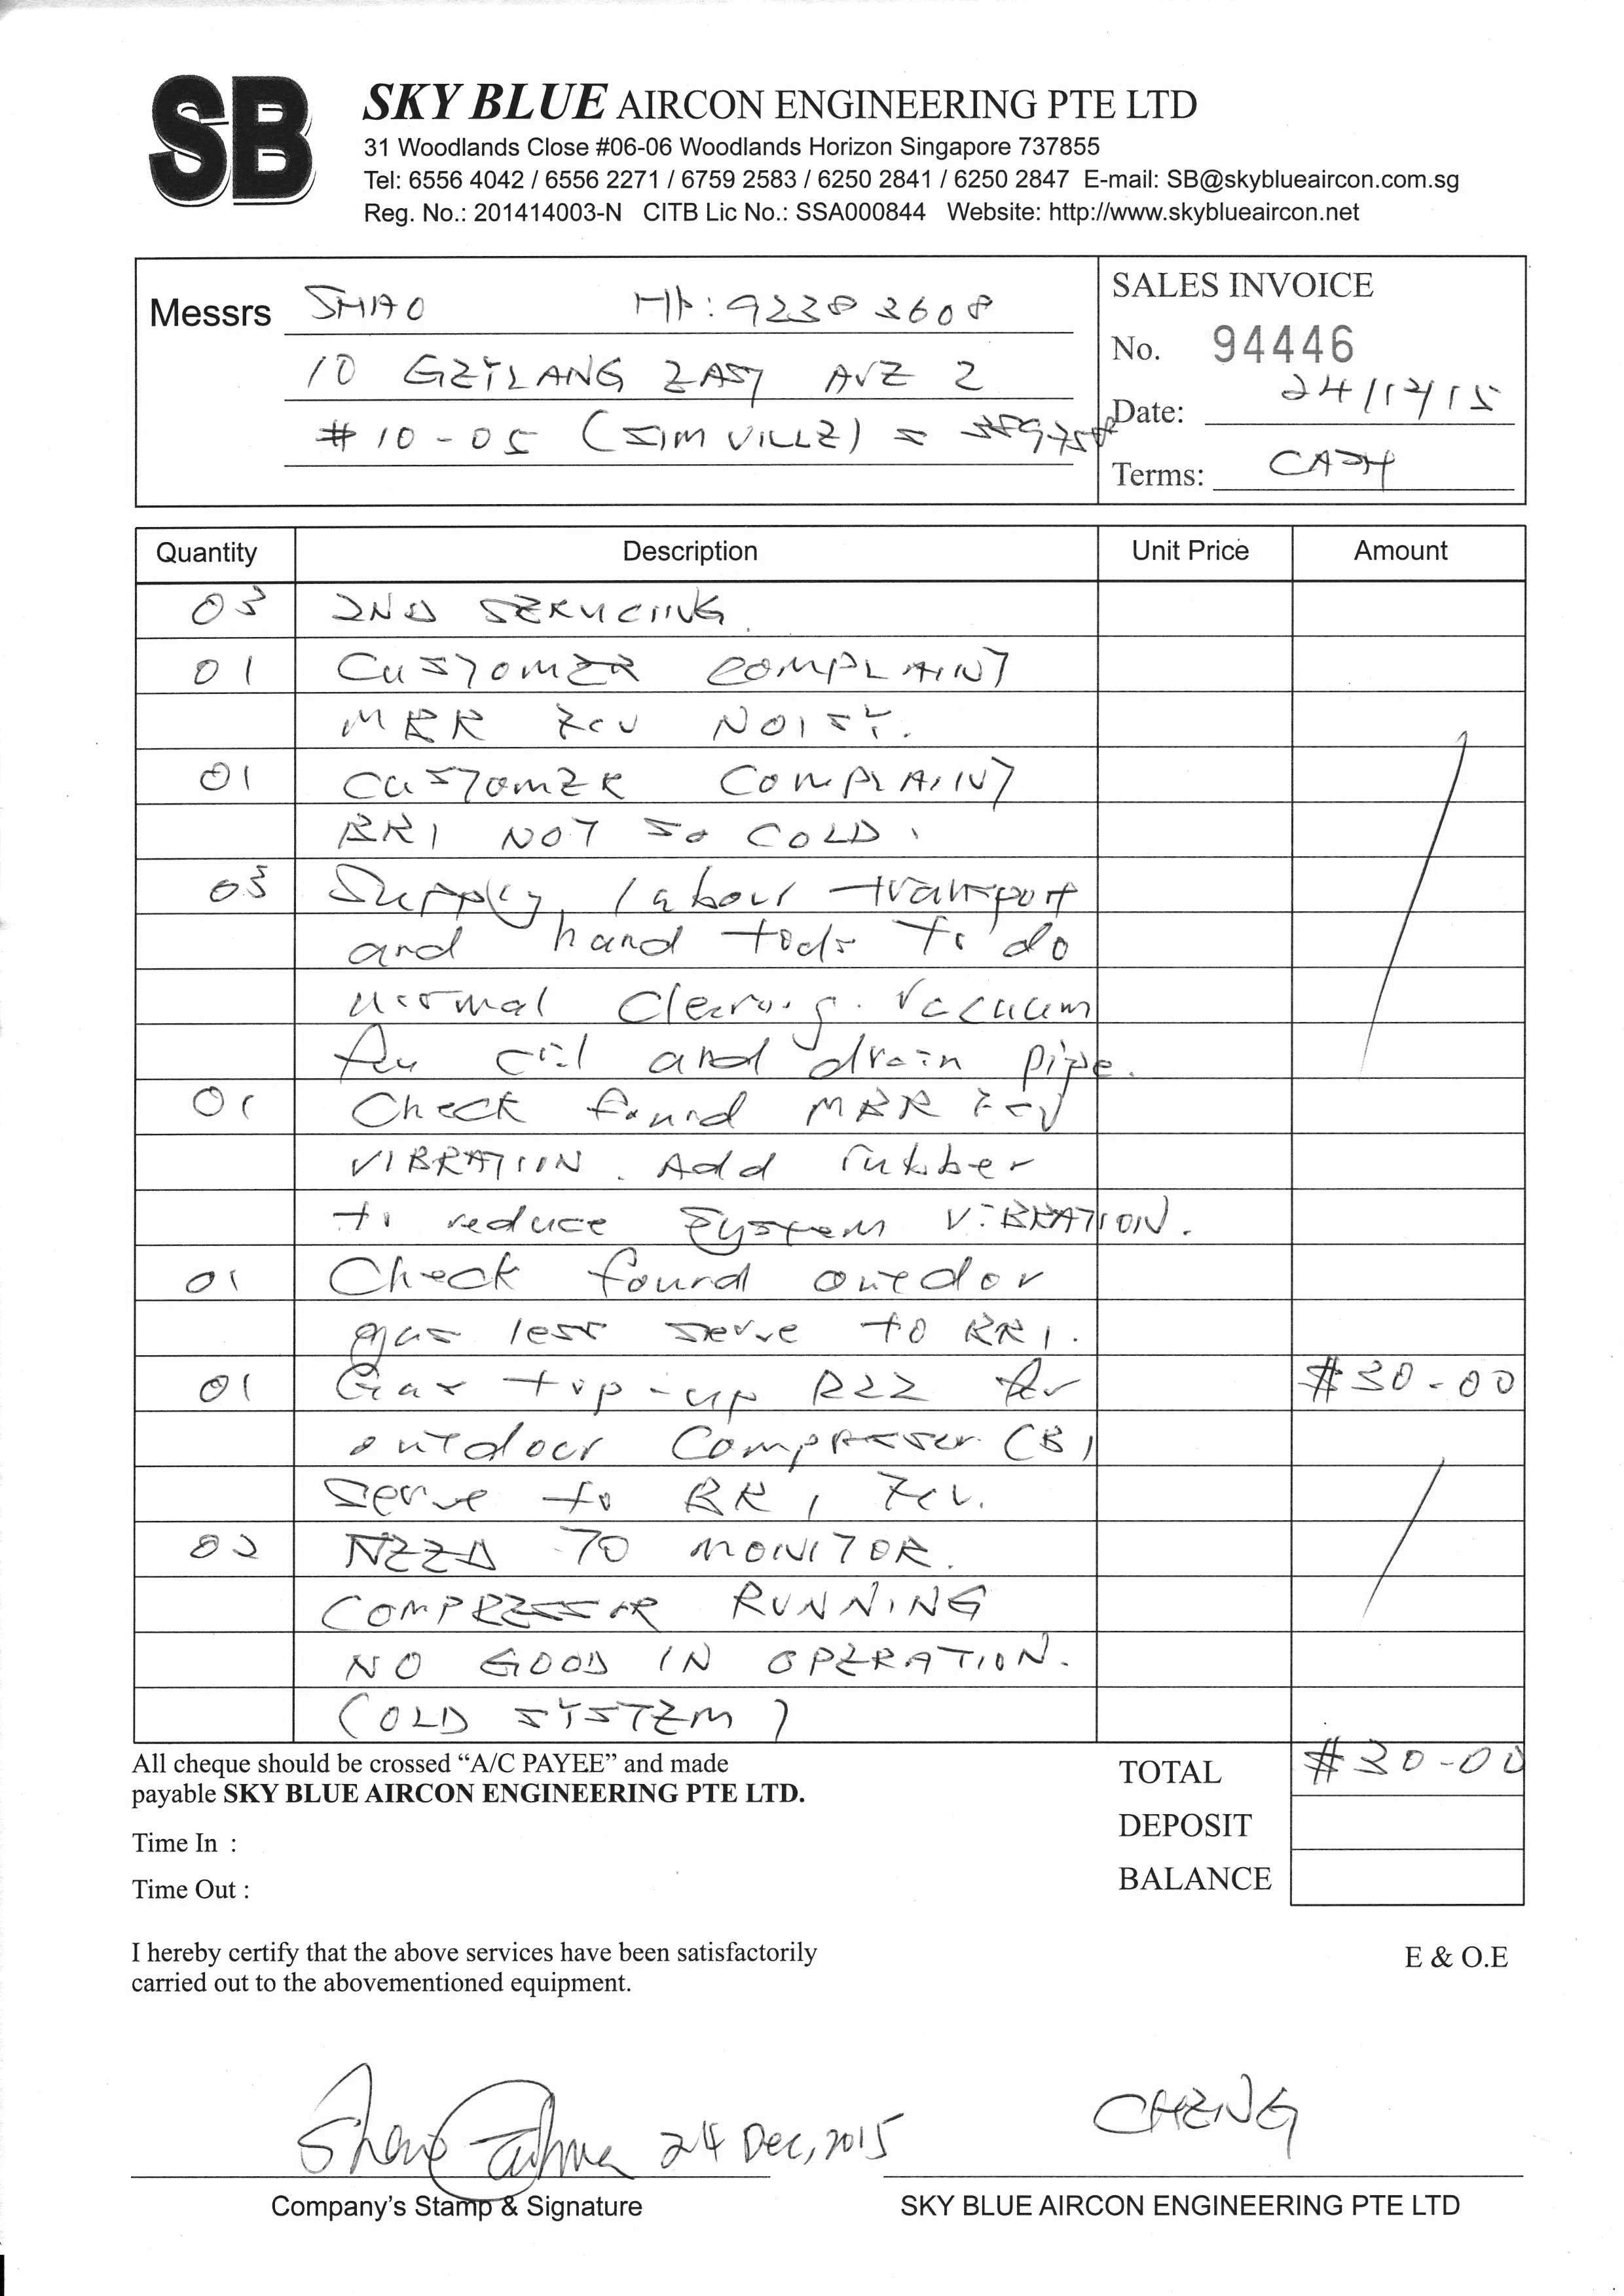 SB
SKY BLUE AIRCON ENGINEERING PTE LTD
31 Woodlands Close #06-06 Woodlands Horizon Singapore 737855
Tel: 6556 4042 / 6556 2271 / 6759 2583 / 6250 2841 / 6250 2847 E-mail: SB@skyblueaircon.com.sg
Reg. No.: 201414003-N CITB Lic No.: SSA000844 Website: http://www.skyblueaircon.net
Messrs SHAO HP: 9238 3608
10 GEYLANG EAST AVE 2
#10-05 (SIM VILLE) S
SALES INVOICE
No. 94446
Date: 24/12/15
Terms: CASH
Quantity Description Unit Price Amount
03 2ND SERVICING.
01 CUSTOMER COMPLAINT
MBR FCU NOISY.
01 CUSTOMER COMPLAINT
BR1 NOT SO COLD.
03 Supply, labour transport
and hand tools to do
normal cleaning. Vacuum
fan coil and drain pipe.
01 Check found MBR FCU
VIBRATION. Add rubber
to reduce system VIBRATION.
01 Check found outdor
gas less serve to BR1.
01 Gas top-up R22 for $30-00
outdoor Compressor (B)
Serve to BR1 FCU.
02 NEED TO MONITOR.
COMPRESSOR RUNNING
NO GOOD IN OPERATION.
(OLD SYSTEM)
All cheque should be crossed “A/C PAYEE” and made
payable SKY BLUE AIRCON ENGINEERING PTE LTD.
TOTAL $30-00
DEPOSIT
BALANCE
Time In :
Time Out :
I hereby certify that the above services have been satisfactorily
carried out to the abovementioned equipment.
E & O.E
24 Dec, 2015
CHENG
Company's Stamp & Signature
SKY BLUE AIRCON ENGINEERING PTE LTD